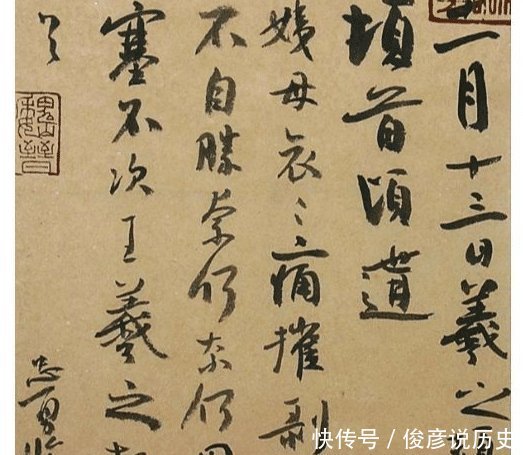 一月十三日羲之頓
頓首頃遘
姨母哀〻痛摧剥
不自勝奈何奈何因
塞不次王羲之
快传号 / 俊彦说历史